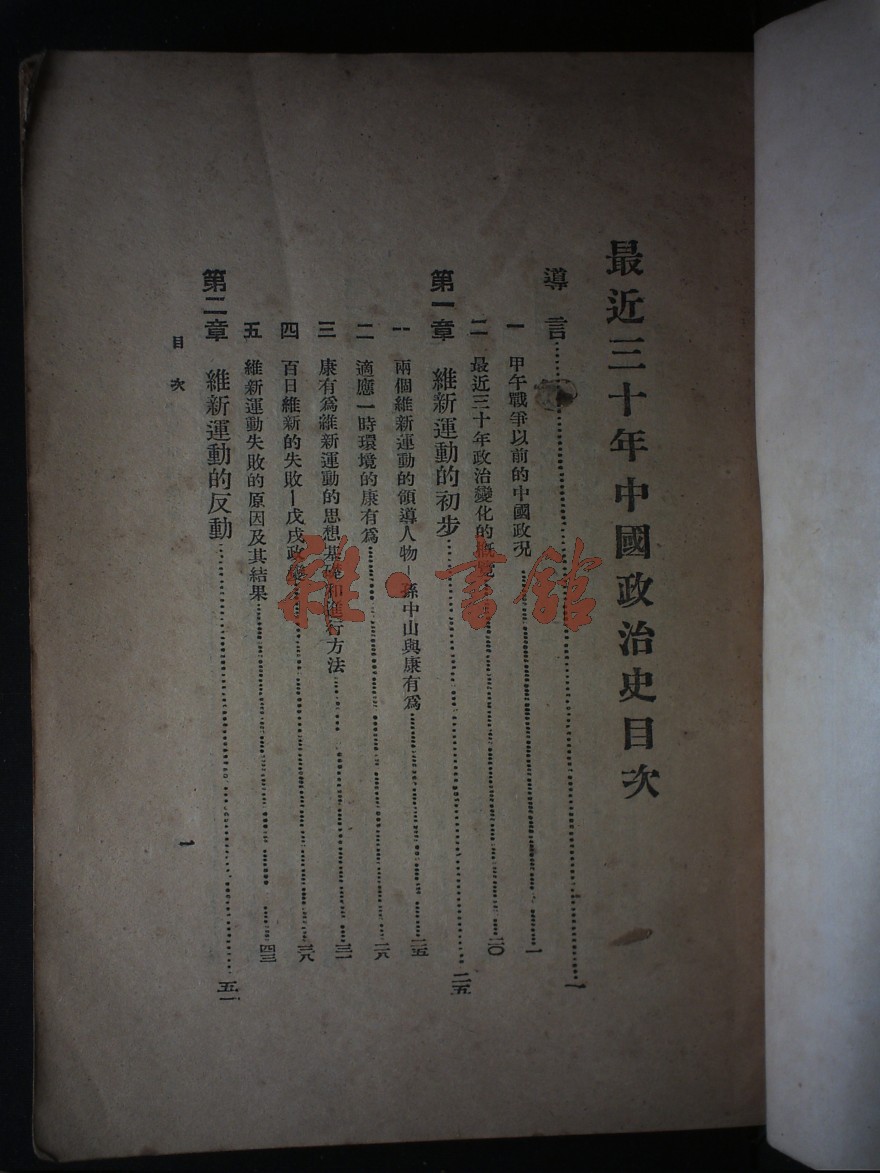 最近三十年中國政治史目次
導言……一
一 甲午戰爭以前的中國政況……一
二 最近三十年政治變化的概覽……二〇
第一章 維新運動的初步……二五
一 兩個維新運動的領導人物—孫中山與康有爲……二五
二 適應一時環境的康有爲……二八
三 康有爲維新運動的思想基礎和進行方法……三一
四 百日維新的失敗—戊戌政變……三八
五 維新運動失敗的原因及其結果……四三
第二章 維新運動的反動……五一
目次
一
雜·書館